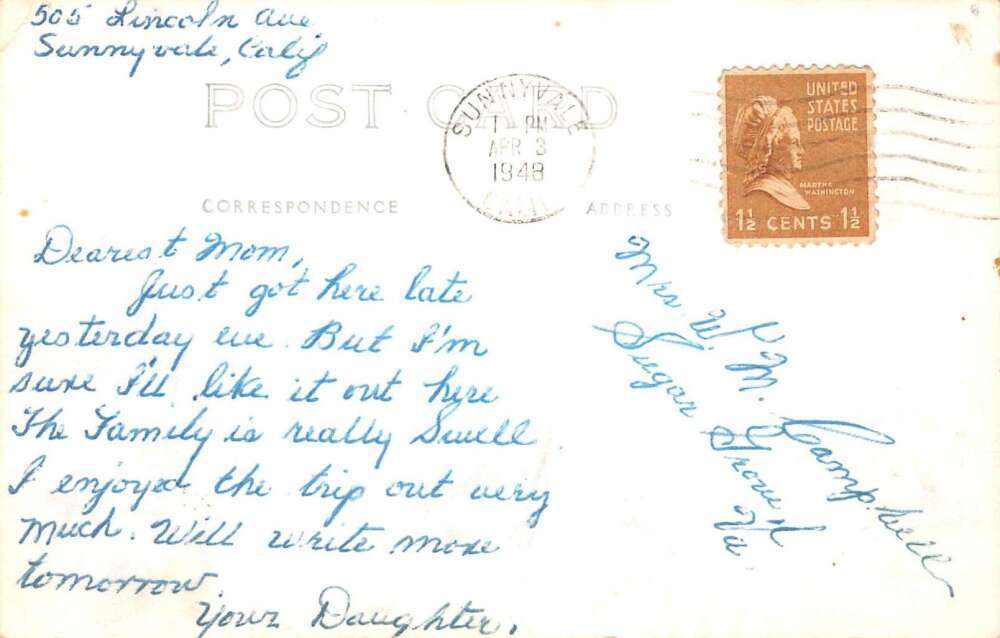 505 Lincoln Ave
Sunnyvale, Calif
POST CARD
SUNNYVALE
1 PM
APR 3
1948
CALIF
UNITED
STATES
POSTAGE
MARTHA
WASHINGTON
1½ CENTS 1½
CORRESPONDENCE
ADDRESS
Dearest Mom,
Just got here late
yesterday eve. But I'm
sure I'll like it out here
The Family is really Swell
I enjoyed the trip out very
much. Will write more
tomorrow.
Your Daughter.
Mrs W. M. Campbell
Sugar Grove
Va